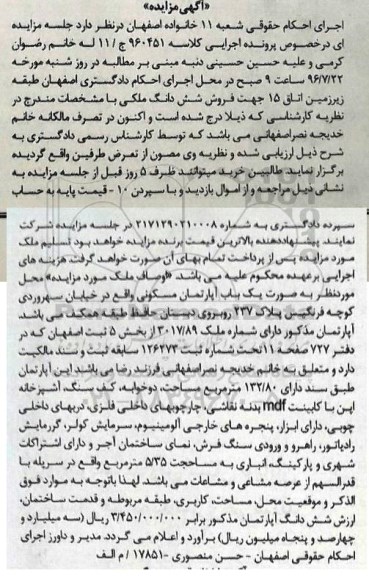 «آگهی مزایده»
اجرای احکام حقوقی شعبه ۱۱ خانواده اصفهان درنظر دارد جلسه مزایده
ای درخصوص پرونده اجرایی کلاسه ۹۶۰۴۵۱ ج/۱۱ له خانم رضوان
کرمی و علیه حسین حسینی دنبه مبنی بر مطالبه در روز شنبه مورخه
۹۶/۷/۲۲ ساعت ۹ صبح در محل اجرای احکام دادگستری اصفهان طبقه
زیرزمین اتاق ۱۵ جهت فروش شش دانگ ملکی با مشخصات مندرج در
نظریه کارشناسی که ذیلا درج شده است و اکنون در تصرف مالکانه خانم
خدیجه نصراصفهانی می باشد که توسط کارشناس رسمی دادگستری به
شرح ذیل ارزیابی شده و نظریه وی مصون از تعرض طرفین واقع گردیده
برگزار نماید. طالبین خرید میتوانند ظرف ۵ روز قبل از جلسه مزایده به
نشانی ذیل مراجعه و از اموال بازدید و با سپردن ۱۰ - قیمت پایه به حساب
سپرده دادگستری به شماره ۲۱۷۱۲۹۰۲۱۰۰۰۸ در جلسه مزایده شرکت
نمایند. پیشنهاددهنده بالاترین قیمت برنده مزایده خواهد بود تسلیم ملک
مورد مزایده پس از پرداخت تمام بهای آن صورت خواهد گرفت هزینه های
اجرایی برعهده محکوم علیه می باشد «اوصاف ملک مورد مزایده» محل
موردنظر به صورت یک باب آپارتمان مسکونی واقع در خیابان سهروردی
کوچه فرنگیس پلاک ۴۳۷ روبروی دبستان حافظ طبقه همکف می باشد.
آپارتمان مذکور دارای شماره ملک ۳۰۱۷/۸۹ از بخش ۵ ثبت اصفهان که در
دفتر ۷۲۷ صفحه ۱۱ تحت شماره ثبت ۱۲۶۲۷۳ سابقه ثبت و سند مالکیت
دارد و متعلق به خانم خدیجه نصراصفهانی فرزند رضا می باشد این آپارتمان
طبق سند دارای ۱۳۲/۸۰ مترمربع مساحت، دوخوابه، کف سنگ، آشپزخانه
اپن با کابینت mdf بدنه نقاشی، چارچوبهای داخلی فلزی، دربهای داخلی
چوبی، دارای ابزار، پنجره های خارجی آلومینیوم، سرمایش کولر، گرمایش
رادیاتور، راهرو و ورودی سنگ فرش، نمای ساختمان آجر و دارای اشتراکات
شهری و پارکینگ، انباری به مساحت ۵/۳۵ مترمربع واقع در سرپله با
قدرالسهم از عرصه مشاعی و مشاعات می باشد. لهذا باتوجه به موارد فوق
الذکر و موقعیت محل، مساحت، کاربری، طبقه مربوطه و قدمت ساختمان،
ارزش شش دانگ آپارتمان مذکور برابر ۳/۴۵۰/۰۰۰/۰۰۰ ریال (سه میلیارد و
چهارصد و پنجاه میلیون ریال) برآورد و اعلام می گردد. مدیر و داورز اجرای
احکام حقوقی اصفهان - حسن منصوری - ۱۷۸۵۱ / م الف